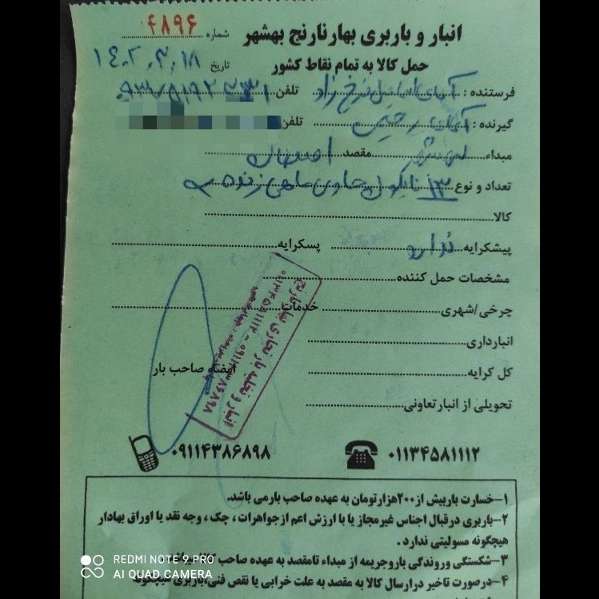 انبار و باربری بهارنارنج بهشهر
شماره ۴۸۹۶
حمل کالا به تمام نقاط کشور
تاریخ ۱۴۰۲.۳.۱۸
فرستنده : آقای اسماعیل فرخ زاد تلفن
گیرنده : آقای رحیمی تلفن
مبداء بهشهر مقصد اصفهان
تعداد و نوع ۱۳ نایلون حاوی ماهی زنده
کالا
پیشکرایه ندارد پسکرایه
مشخصات حمل کننده
چرخی/شهری خدمات
انبارداری
کل کرایه امضاء صاحب بار
تحویلی از انبار تعاونی
۰۱۱۳۴۵۸۱۱۱۲ ۰۹۱۱۴۳۸۶۸۹۸
۱-خسارت باربیش از ۲۰۰هزارتومان به عهده صاحب بارمی باشد.
۲-باربری درقبال اجناس غیرمجاز یا با ارزش اعم ازجواهرات ، چک ، وجه نقد یا اوراق بهادار
هیچگونه مسولیتی ندارد .
۳-شکستگی وروندگی باروجریمه از مبداء تامقصد به عهده صاحب
۴-درصورت تاخیر درارسال کالا به مقصد به علت خرابی یا نقص فنی،باربری هیچگونه
REDMI NOTE 9 PRO
AI QUAD CAMERA